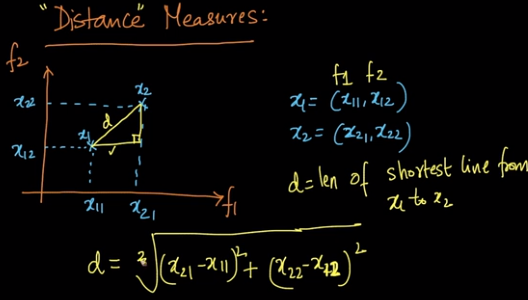 "Distance" Measures:
f2
x22
x2
d
x1
x12
x11
x21
f1
f1 f2
x1 = (x11, x12)
x2 = (x21, x22)
d = len of shortest line from
x1 to x2
d = ²√(x21 - x11)² + (x22 - x12)²